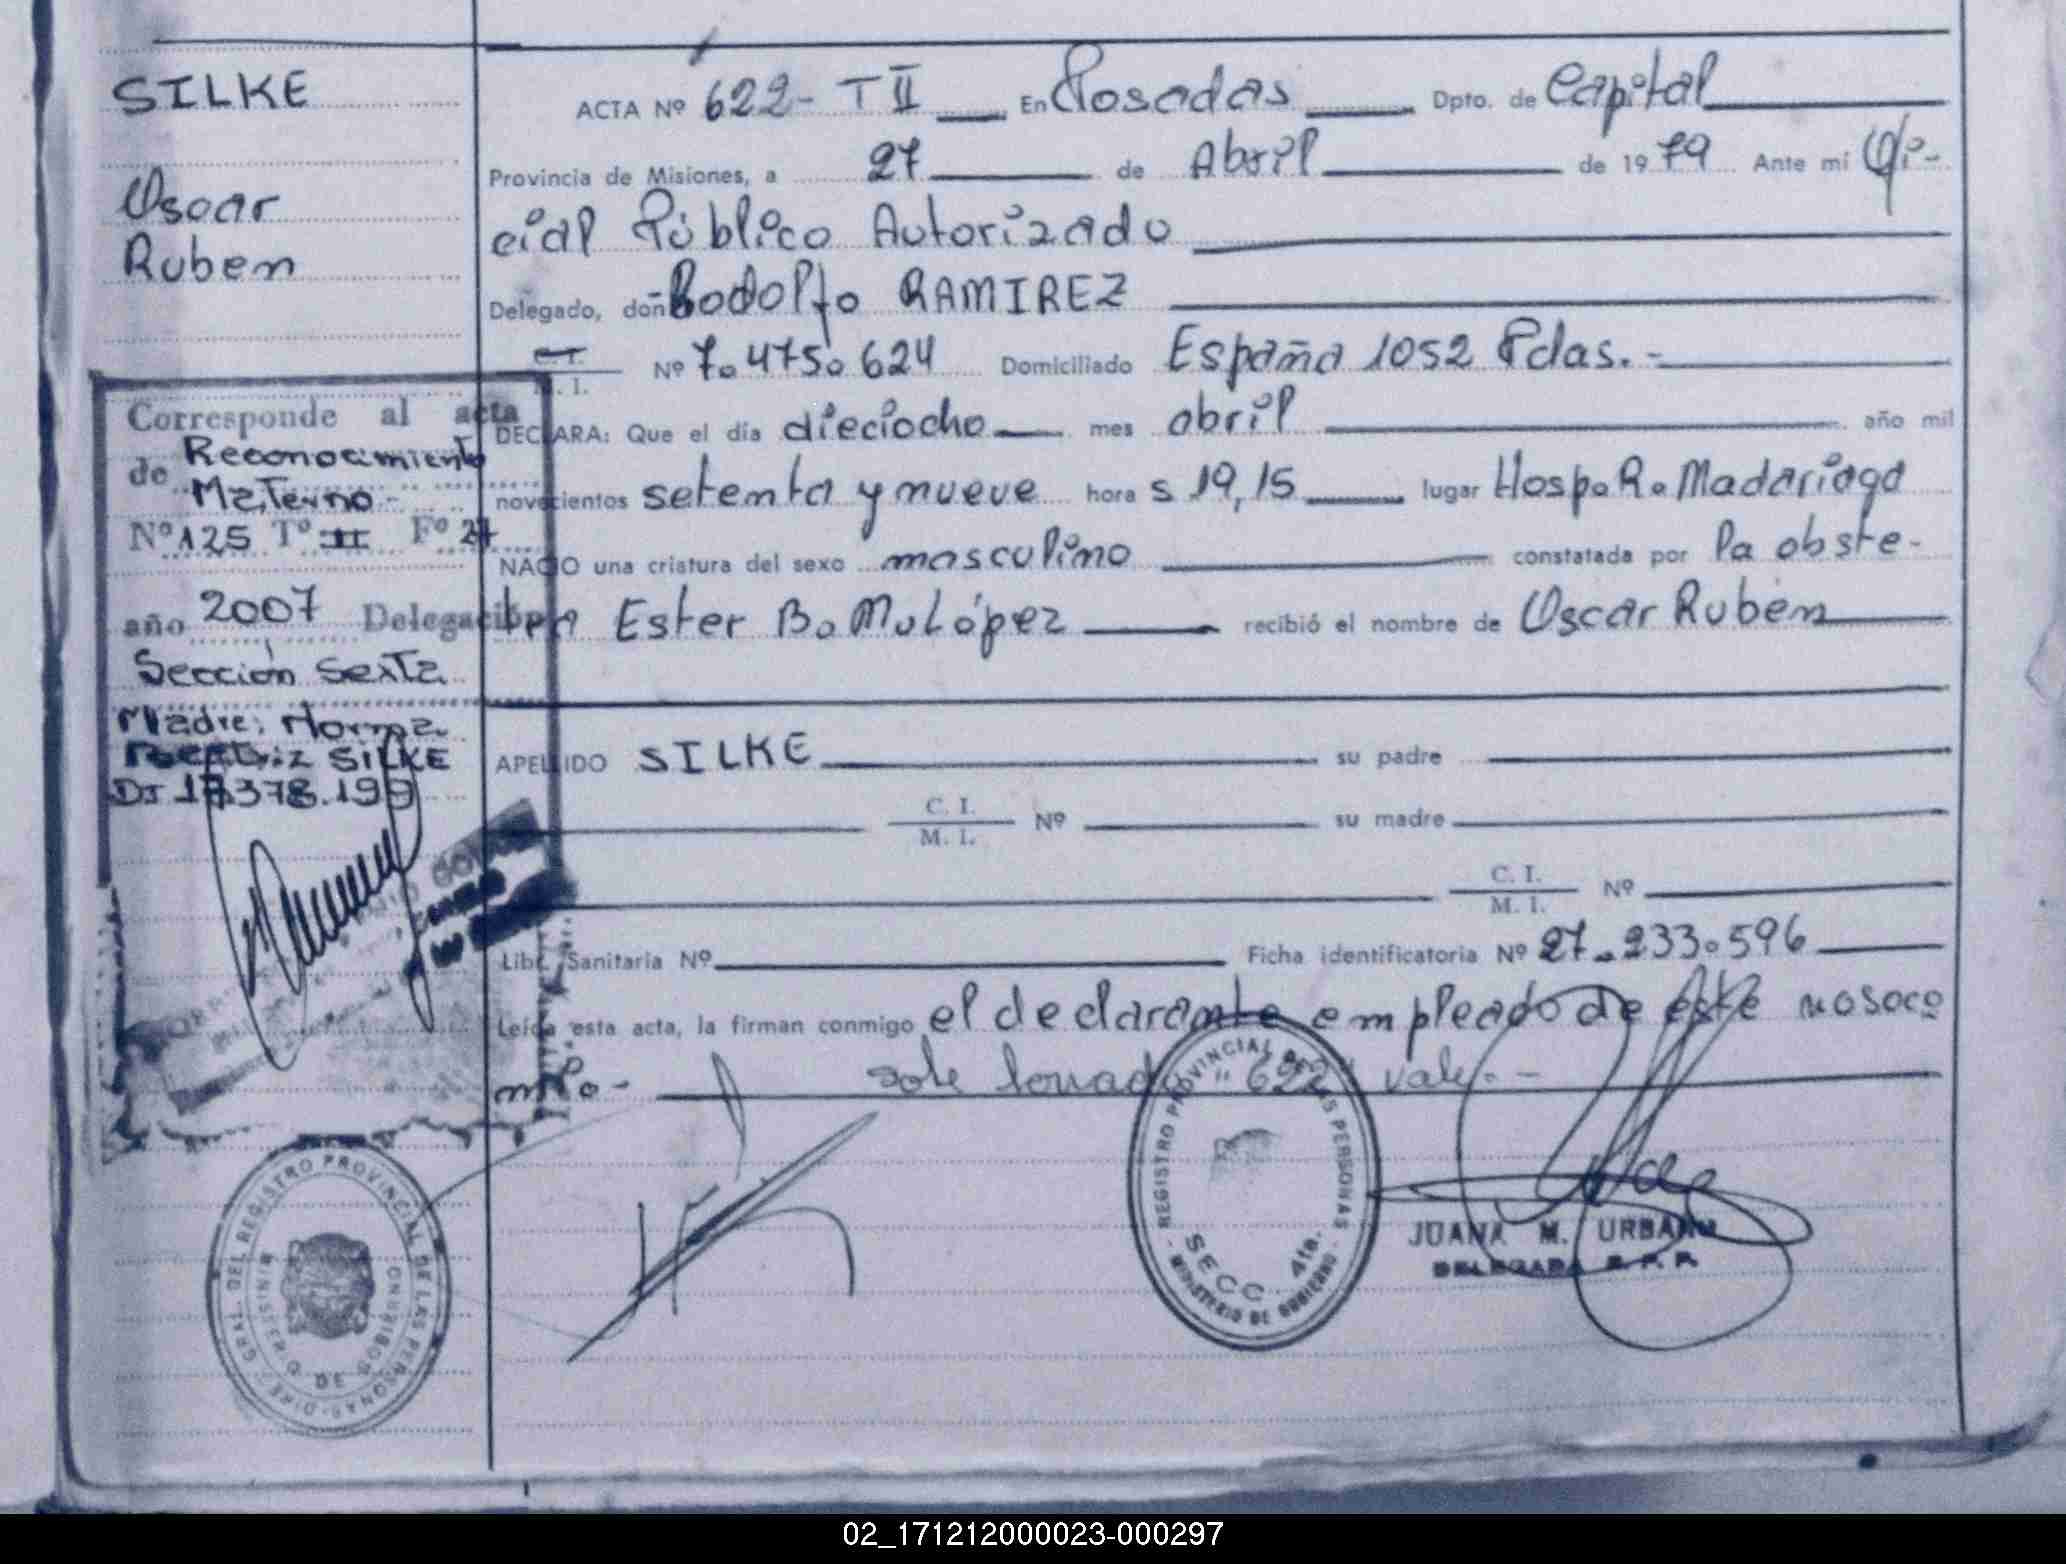 SILKE
Oscar
Ruben
ACTA Nº 622- T II En Posadas Dpto. de Capital
Provincia de Misiones, a 27 de Abril de 1979 Ante mí Ofi-
cial Público Autorizado
Delegado, don Rodolfo RAMIREZ
C.I. M. I. Nº 7.475.624 Domiciliado España 1052 Pdas.-
DECLARA: Que el día dieciocho mes abril año mil
novecientos setenta y nueve hora s 19,15 lugar Hosp. R. Madariaga
NACIO una criatura del sexo masculino constatada por la obste-
tra Ester B. M. López recibió el nombre de Oscar Rubén
APELLIDO SILKE su padre
C. I. M. I. Nº su madre
C. I. M. I. Nº
Libr. Sanitaria Nº Ficha identificatoria Nº 27.233.596
Leída esta acta, la firman conmigo el declarante empleado de este nosoco
mio- sobre borrado "622" vale.-
Corresponde al acta
de Reconocimiento
Materno-
Nº 125 Tº II Fº 27
año 2007 Delegación
Sección Sexta
Madre: Norma
Beatriz SILKE
DI 17.378.199
DIREC. GRAL. DEL REGISTRO PROVINCIAL DE LAS PERSONAS
MINISTERIO DE GOBIERNO
REGISTRO PROVINCIAL DE LAS PERSONAS
SECC. 4ta.
MINISTERIO DE GOBIERNO
JUANA M. URBANO
DELEGADA R. P. P.
02_171212000023-000297